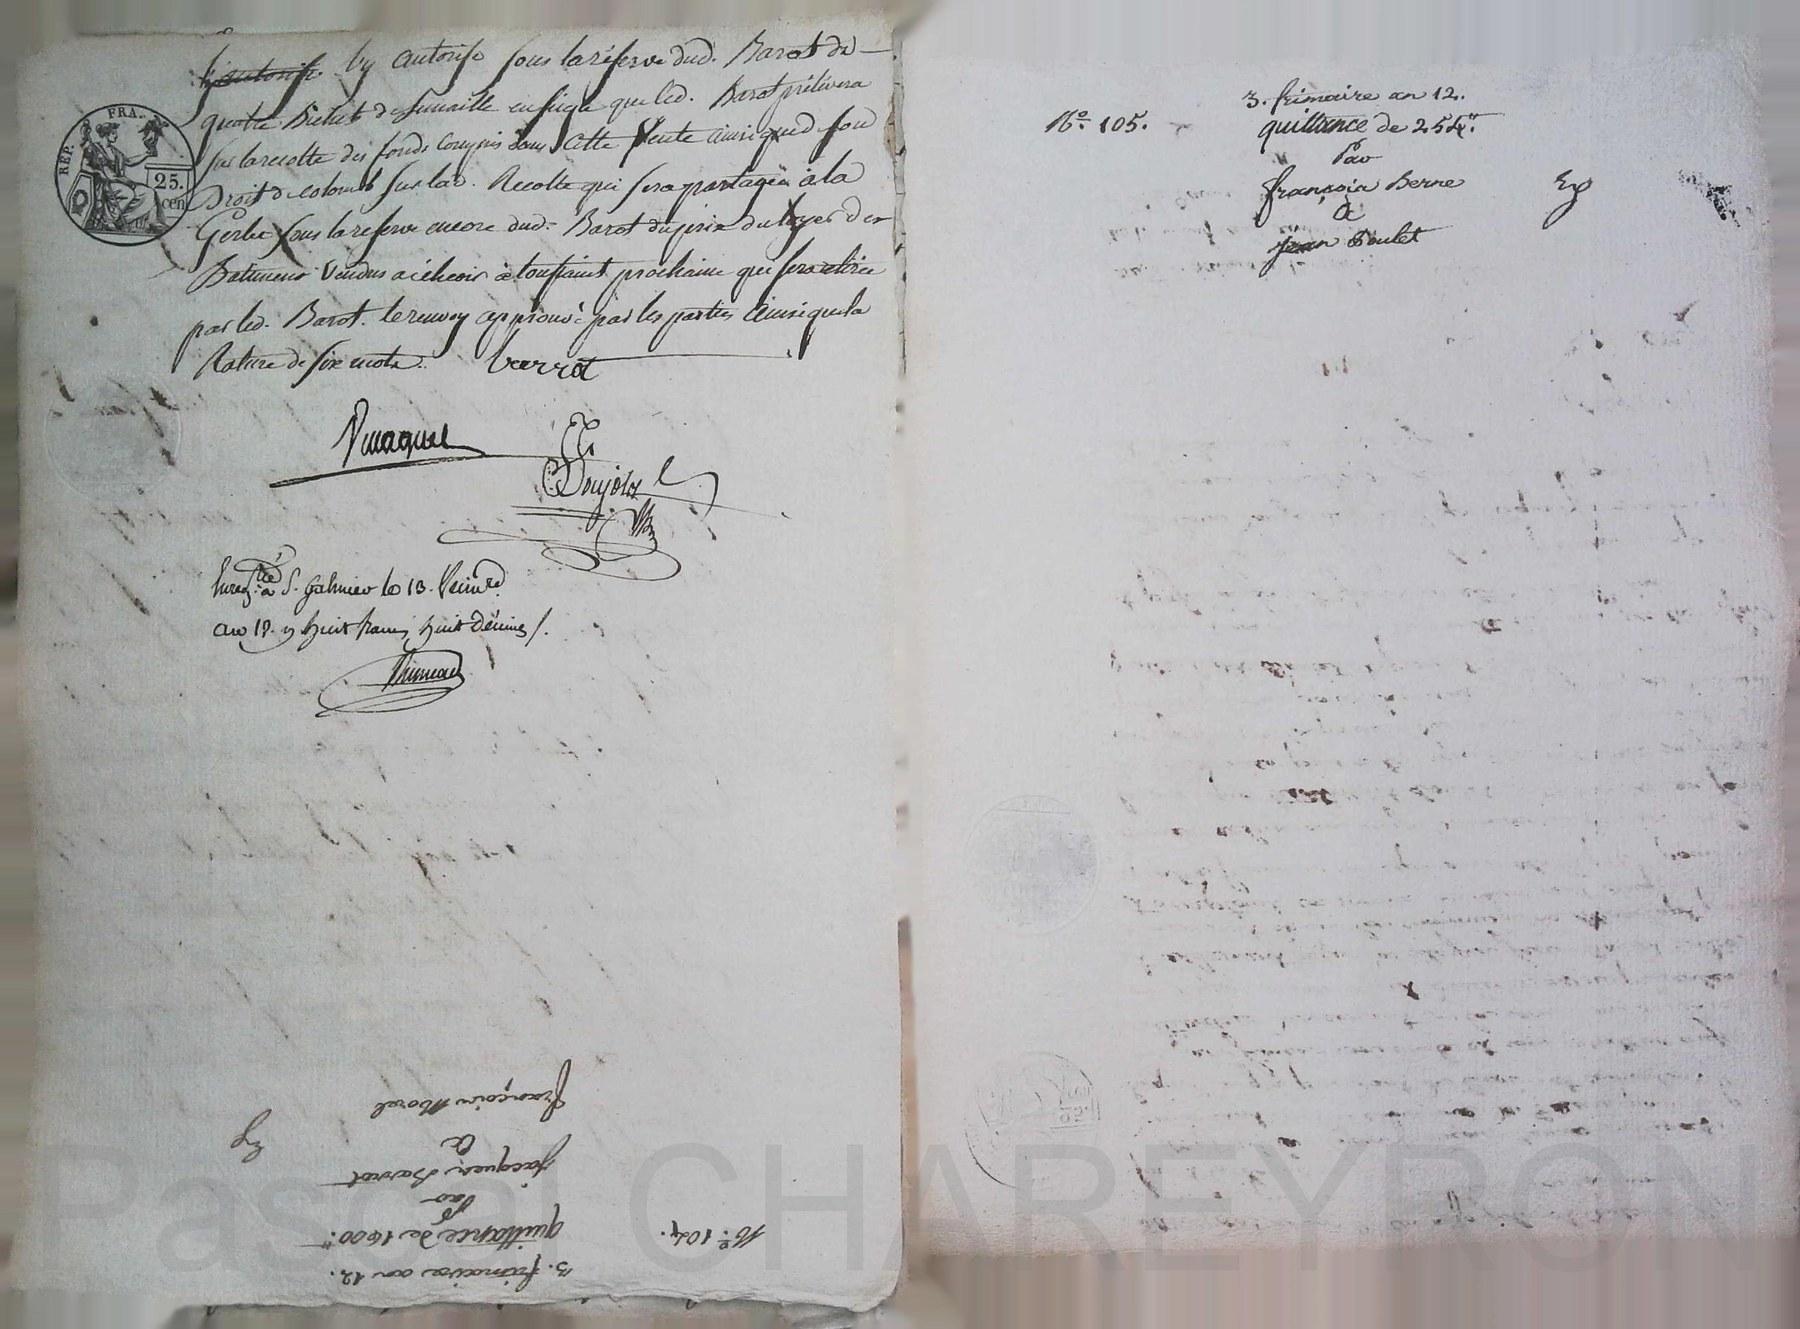 REP. FRA.
25.
cen
l'y autorise sous la réserve dud. Barot de
quatre Bichet de semaille en seigle que led. Barot prélivera
sur la recolte des fonds compris dans cette vente ainsi que d son
Droit de colonat sur lad. Recolte qui sera partagée à la
Gerbe sous la réserve encore dud. Barot du prix du loyer des
Batimens vendus a échoir à toussaint prochaine qui sera retirée
par led. Barot. le renvoy approuvé par les parties ainsi que la
Rature de six mots. barrot
Pujolas
Enreg.tré à S. Galmier le 13. frim.re
an 12. y huit francs huit décimes /.
françois Morel
à
jacques Barrot
Par
quittance de 1600."
3. frimaire an 12.
N.° 104.
Ex
3. frimaire an 12.
N.° 105.
quittance de 254."
Par
françois Berne
à
jean Poulet
Ex
Pascal CHAREYRON